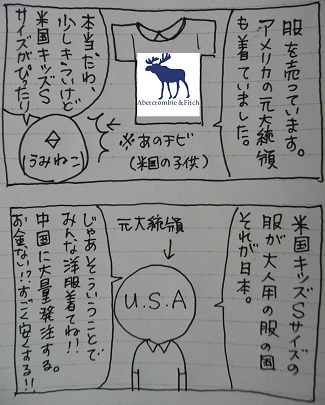 服を売っています。
アメリカの元大統領
も着ていました。
Abercrombie &Fitch
※あのチビ
(米国の子供)
本当だわ、
少しきついけど
米国キッズS
サイズがぴったり
(うみねこ)
米国キッズSサイズの
服が大人用の服の国
それが日本。
元大統領
U.S.A
じゃあそういうことで
みんな洋服着てね!!
中国に大量発注する。
お金ない!?すごく安くする!!